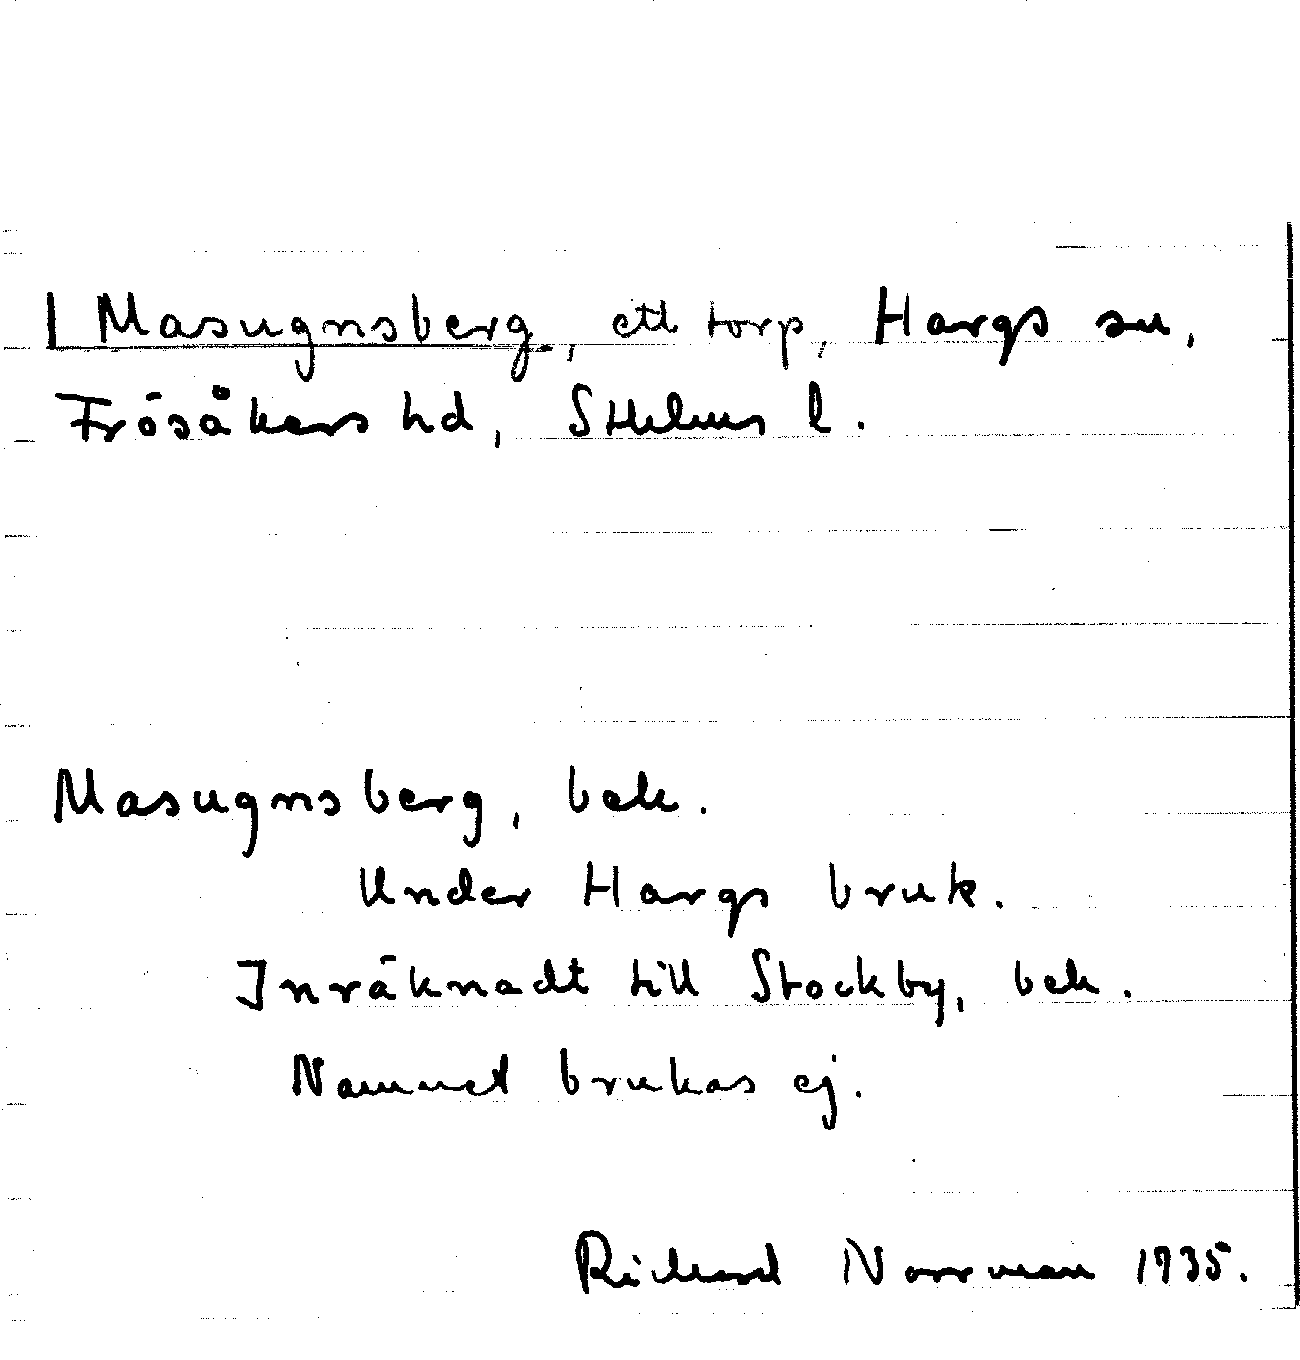 | Masugnsberg, ett torp, Hargs sn,
Frösåkers hd, Sthlms l.
Masugnsberg, bek.
Under Hargs bruk.
Inräknadt till Stockby, bek.
Namnet brukas ej.
Richard Norrman 1935.